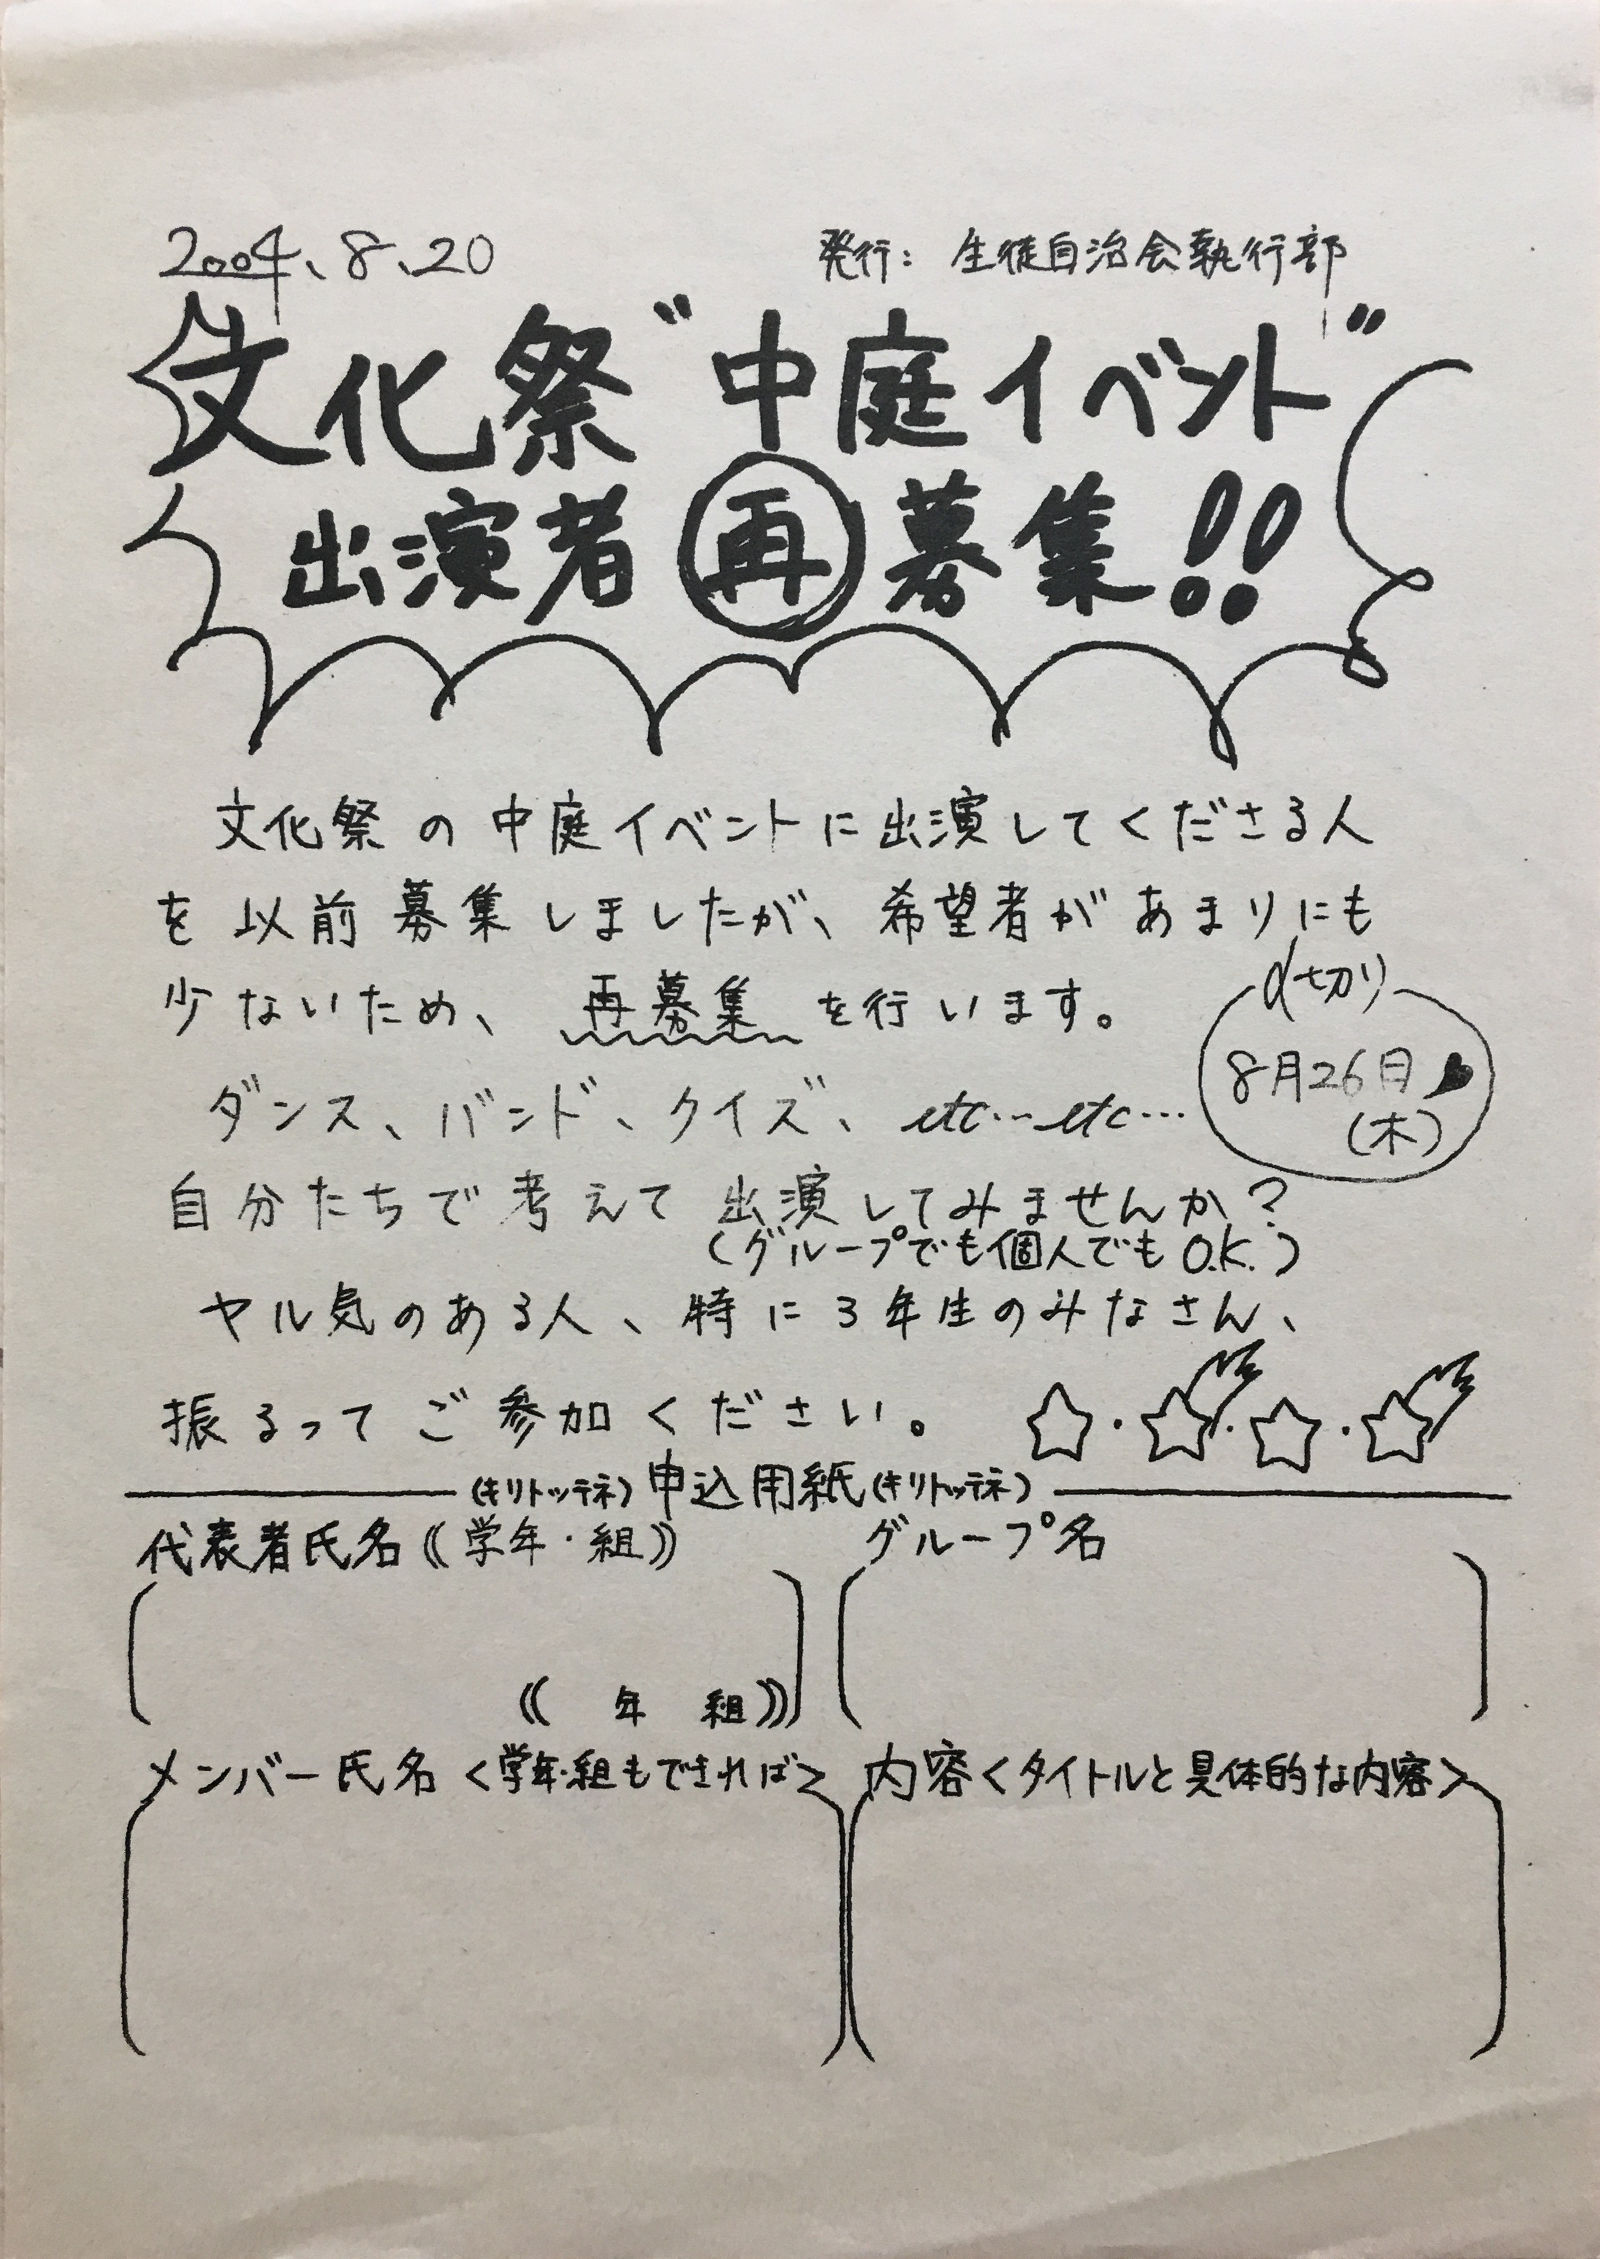 2004、8、20
発行：生徒自治会執行部
文化祭〝中庭イベント〟
出演者 再 募集!!
文化祭の中庭イベントに出演してくださる人
を以前募集しましたが、希望者があまりにも
少ないため、再募集を行います。
〆切り
8月26日♥
（木）
ダンス、バンド、クイズ、etc…etc…
自分たちで考えて出演してみませんか？
（グループでも個人でもO.K.）
ヤル気のある人、特に3年生のみなさん、
振るってご参加ください。
☆・☆・☆・☆
（キリトッテネ）申込用紙（キリトッテネ）
代表者氏名《学年・組》
グループ名
《 年 組》
メンバー氏名＜学年・組もできれば＞
内容＜タイトルと具体的な内容＞